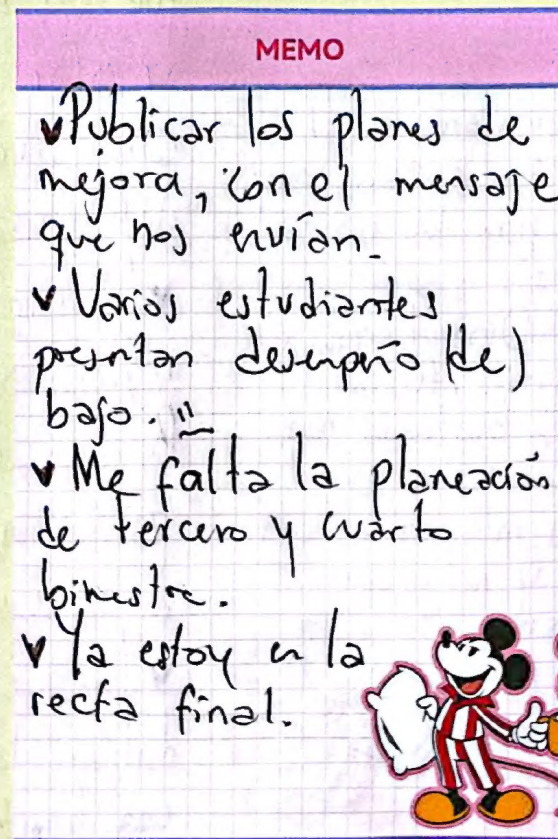 MEMO
✓Publicar los planes de
mejora, con el mensaje
que nos envían.
✓ Varios estudiantes
presentan desempeño (de)
bajo. ¨
✓ Me falta la planeación
de tercero y cuarto
bimestre.
✓ Ya estoy en la
recta final.